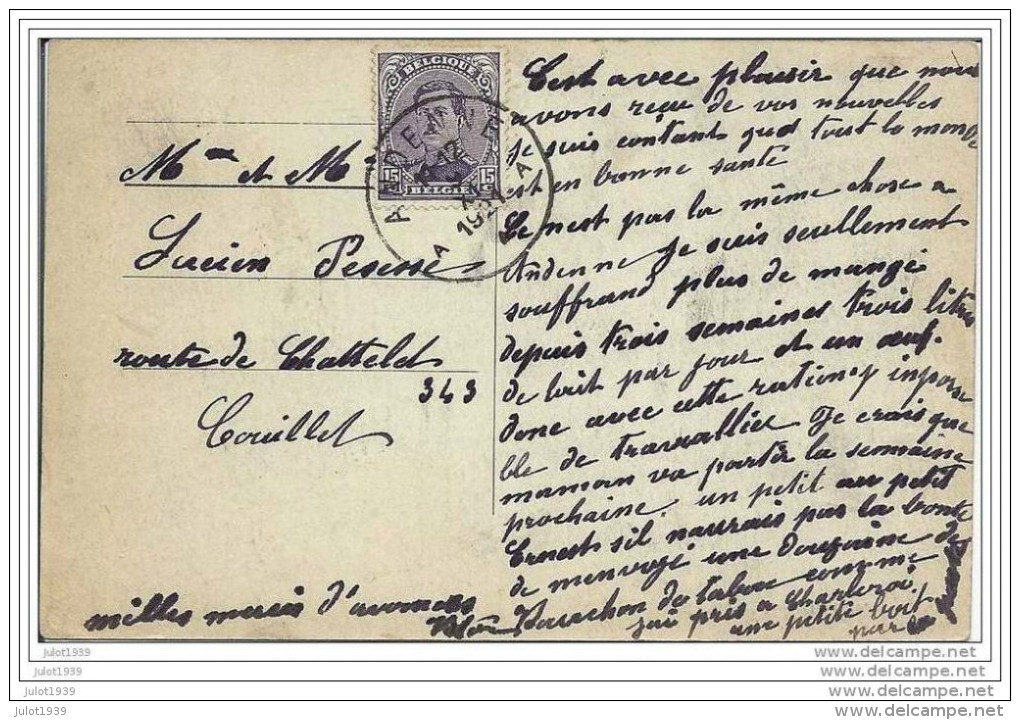 BELGIQUE
15 15
BELGIË
ANDENNE
12
1921
A A
Mme et Mr
Lucien Pesesse
route de Chattelet
343
Couillet
C'est avec plaisir que nous
avons reçu de vos nouvelles
je suis contant que tout le monde
est en bonne santé
Ce nest pas la même chose a
Andenne je suis seullement
souffrand plus de mangé
depuis trois semaines trois litres
de lait par jour et un œuf.
donc avec cette ration impossi
ble de travallier Je crais que
maman va partir la semaine
prochaine. un petit au petit
Ernest sil naurais pas la bonté
de menvoyé une douzaine de
de tabac comme
jai pris a Charleroi
une petite boit
par
milles mercis d'avances
julot1939
julot1939
julot1939
julot1939
delcampe.net
delcampe.net
delcampe.net
delcampe.net